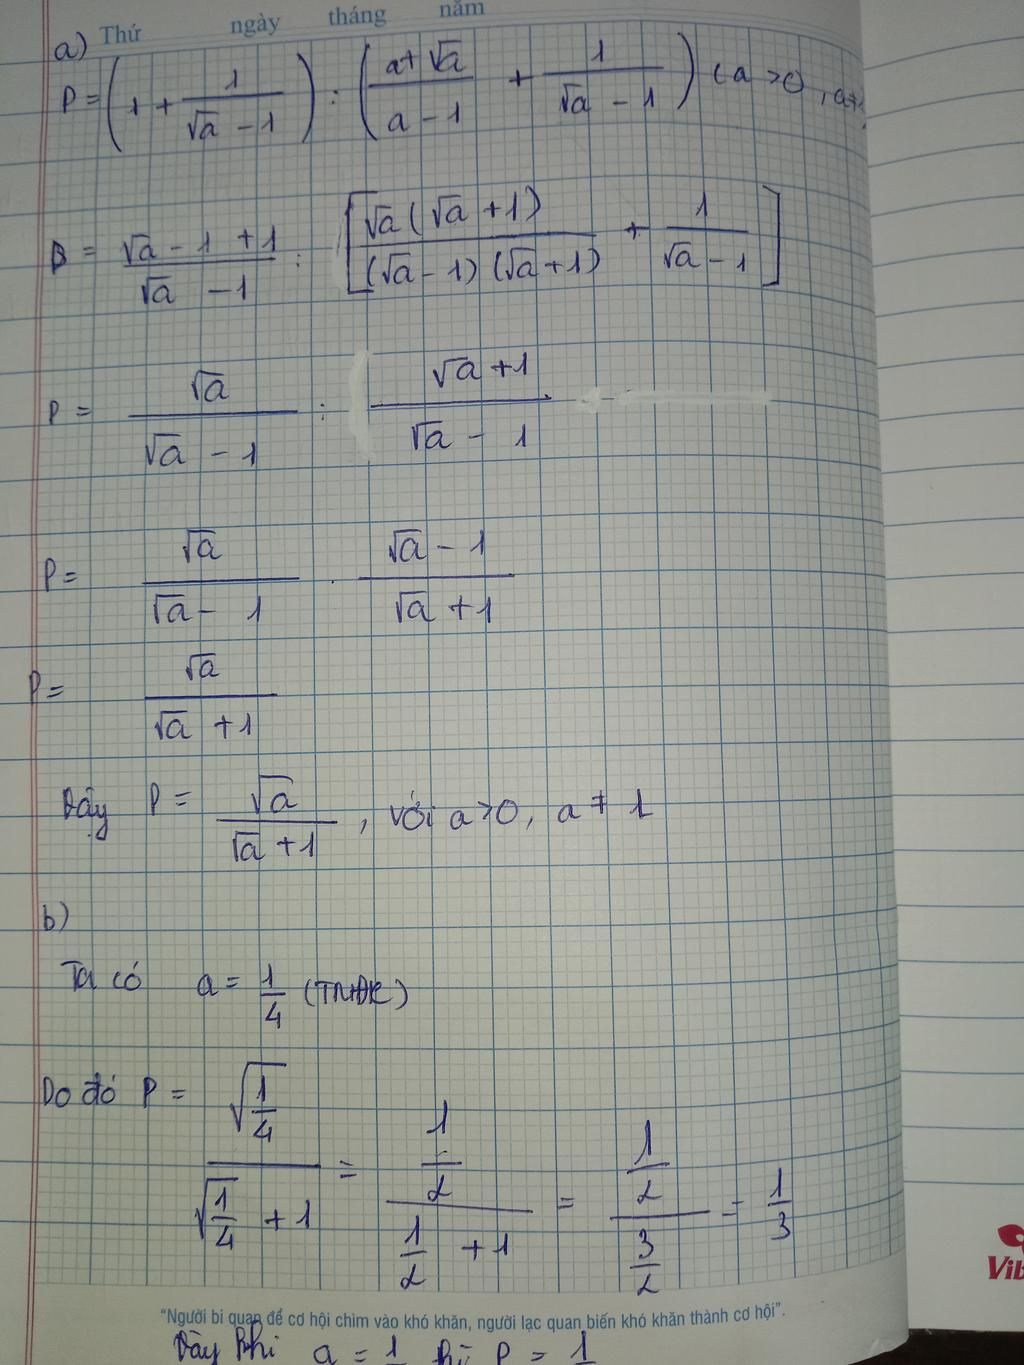 Thứ ngày tháng năm
a)
P = (1 + 1/(√a - 1)) : ((a + √a)/(a - 1) + 1/(√a - 1)) (a > 0, a ≠
B = (√a - 1 + 1)/(√a - 1) : [√a(√a + 1)/((√a - 1)(√a + 1)) + 1/(√a - 1)]
P = √a/(√a - 1) : (√a + 1)/(√a - 1)
P = √a/(√a - 1) . (√a - 1)/(√a + 1)
P = √a/(√a + 1)
Vậy P = √a/(√a + 1), với a > 0, a ≠ 1
b)
Ta có a = 1/4 (TMĐK)
Do đó P = √(1/4)/(√(1/4) + 1) = (1/2)/(1/2 + 1) = (1/2)/(3/2) = 1/3
"Người bi quan để cơ hội chìm vào khó khăn, người lạc quan biến khó khăn thành cơ hội".
Vậy khi a = 1 thì P = 1
Vib